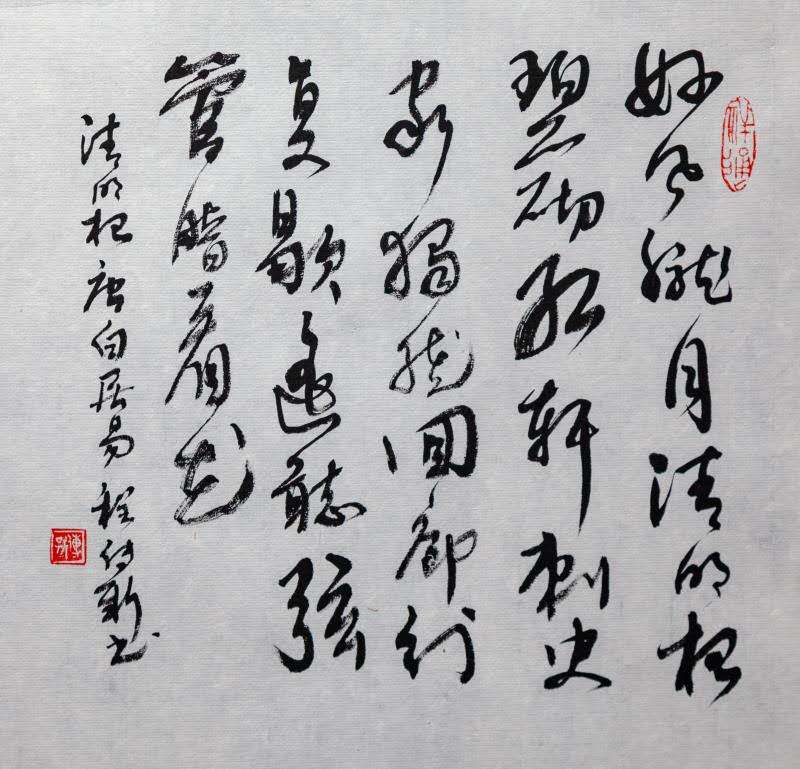 好风胧月清明夜
碧砌红轩刺史
家独绕回廊行
复歇遥听弦
管暗看花
清明夜 唐白居易 程新书